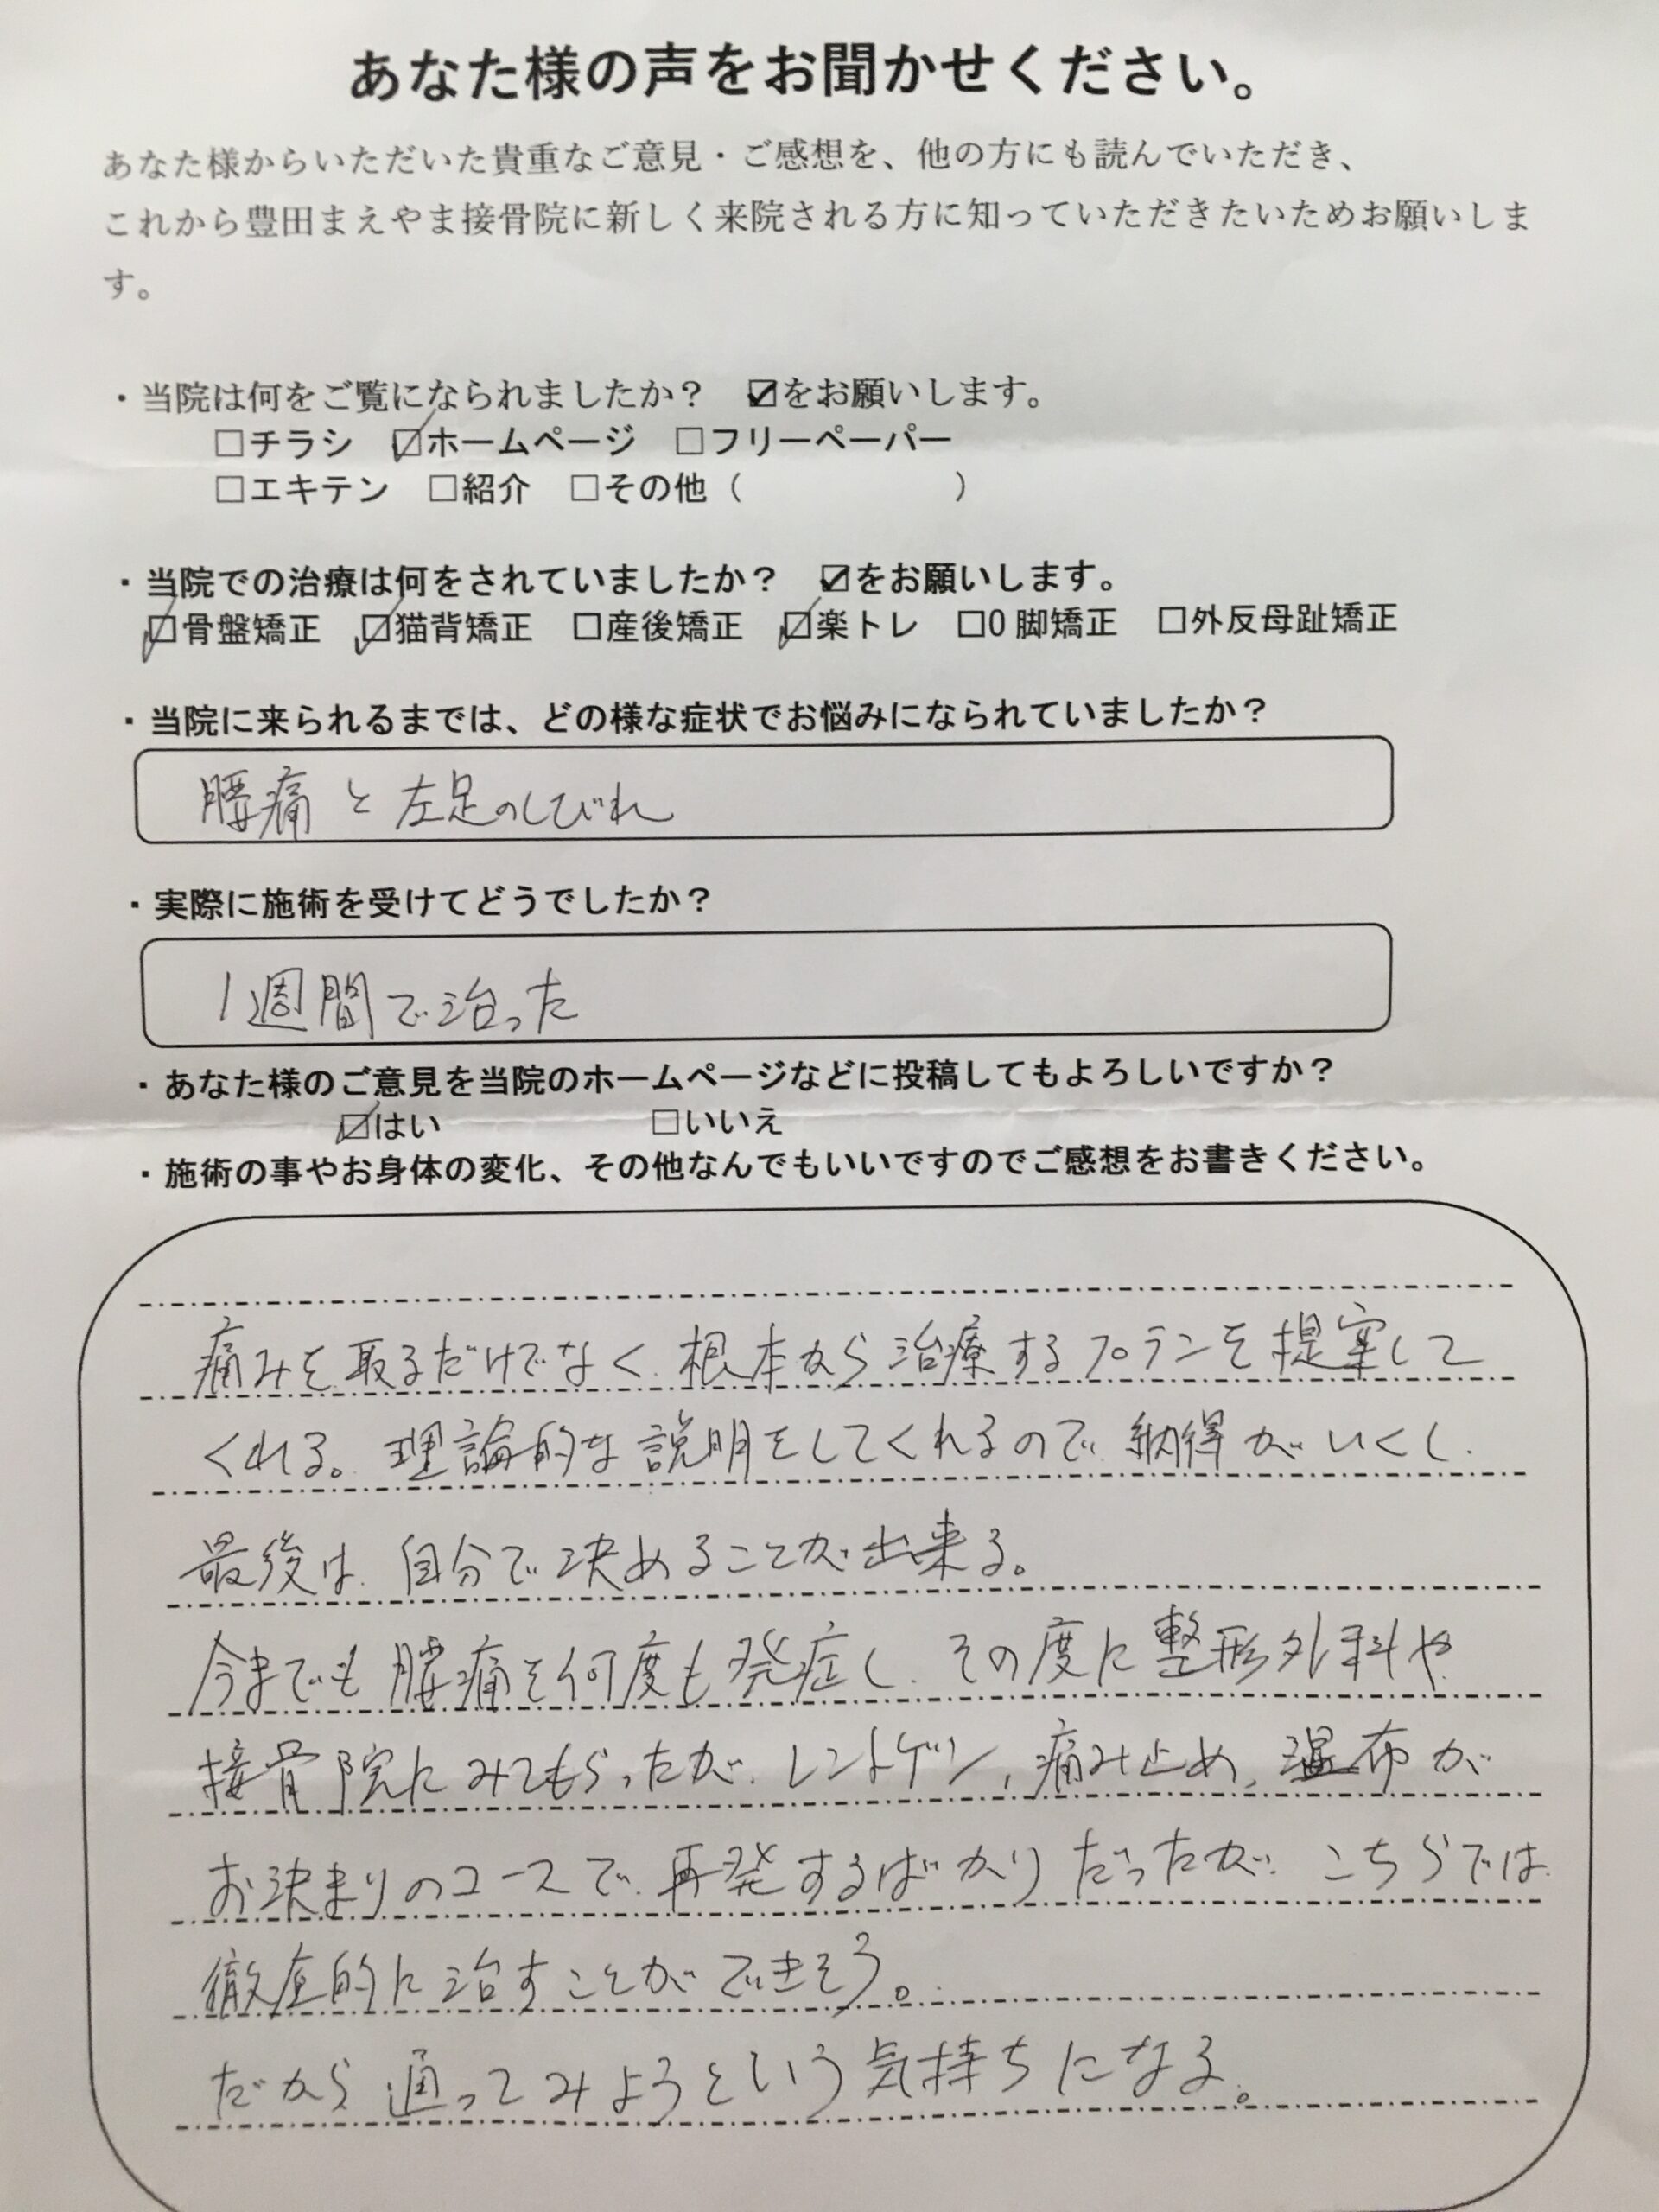 あなた様の声をお聞かせください。
あなた様からいただいた貴重なご意見・ご感想を、他の方にも読んでいただき、
これから豊田まえやま接骨院に新しく来院される方に知っていただきたいためお願いしま
す。
・当院は何をご覧になられましたか？　☑をお願いします。
□チラシ　☑ホームページ　□フリーペーパー
□エキテン　□紹介　□その他（　　　　　　）
・当院での治療は何をされていましたか？　☑をお願いします。
☑骨盤矯正　☑猫背矯正　□産後矯正　☑楽トレ　□O脚矯正　□外反母趾矯正
・当院に来られるまでは、どの様な症状でお悩みになられていましたか？
腰痛と左足のしびれ
・実際に施術を受けてどうでしたか？
1週間で治った
・あなた様のご意見を当院のホームページなどに投稿してもよろしいですか？
☑はい　□いいえ
・施術の事やお身体の変化、その他なんでもいいですのでご感想をお書きください。
痛みを取るだけでなく、根本から治療するプランを提案して
くれる。理論的な説明をしてくれるので、納得がいくし、
最後は、自分で決めることが出来る。
今までも腰痛を何度も発症し、その度に整形外科や
接骨院にみてもらったが、レントゲン、痛み止め、湿布が
お決まりのコースで、再発するばかりだったが、こちらでは、
徹底的に治すことができそう。
だから通ってみようという気持ちになる。